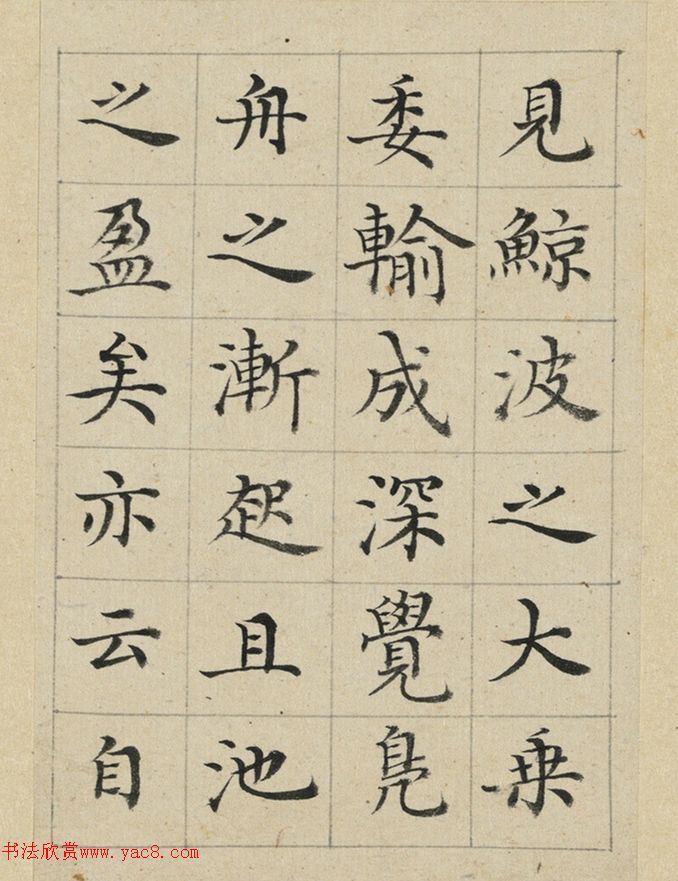 見鯨波之大乗
委輸成深覺鳧
舟之漸起且池
之盈矣亦云自
书法欣赏www.yac8.com